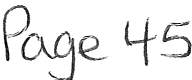 Page 45